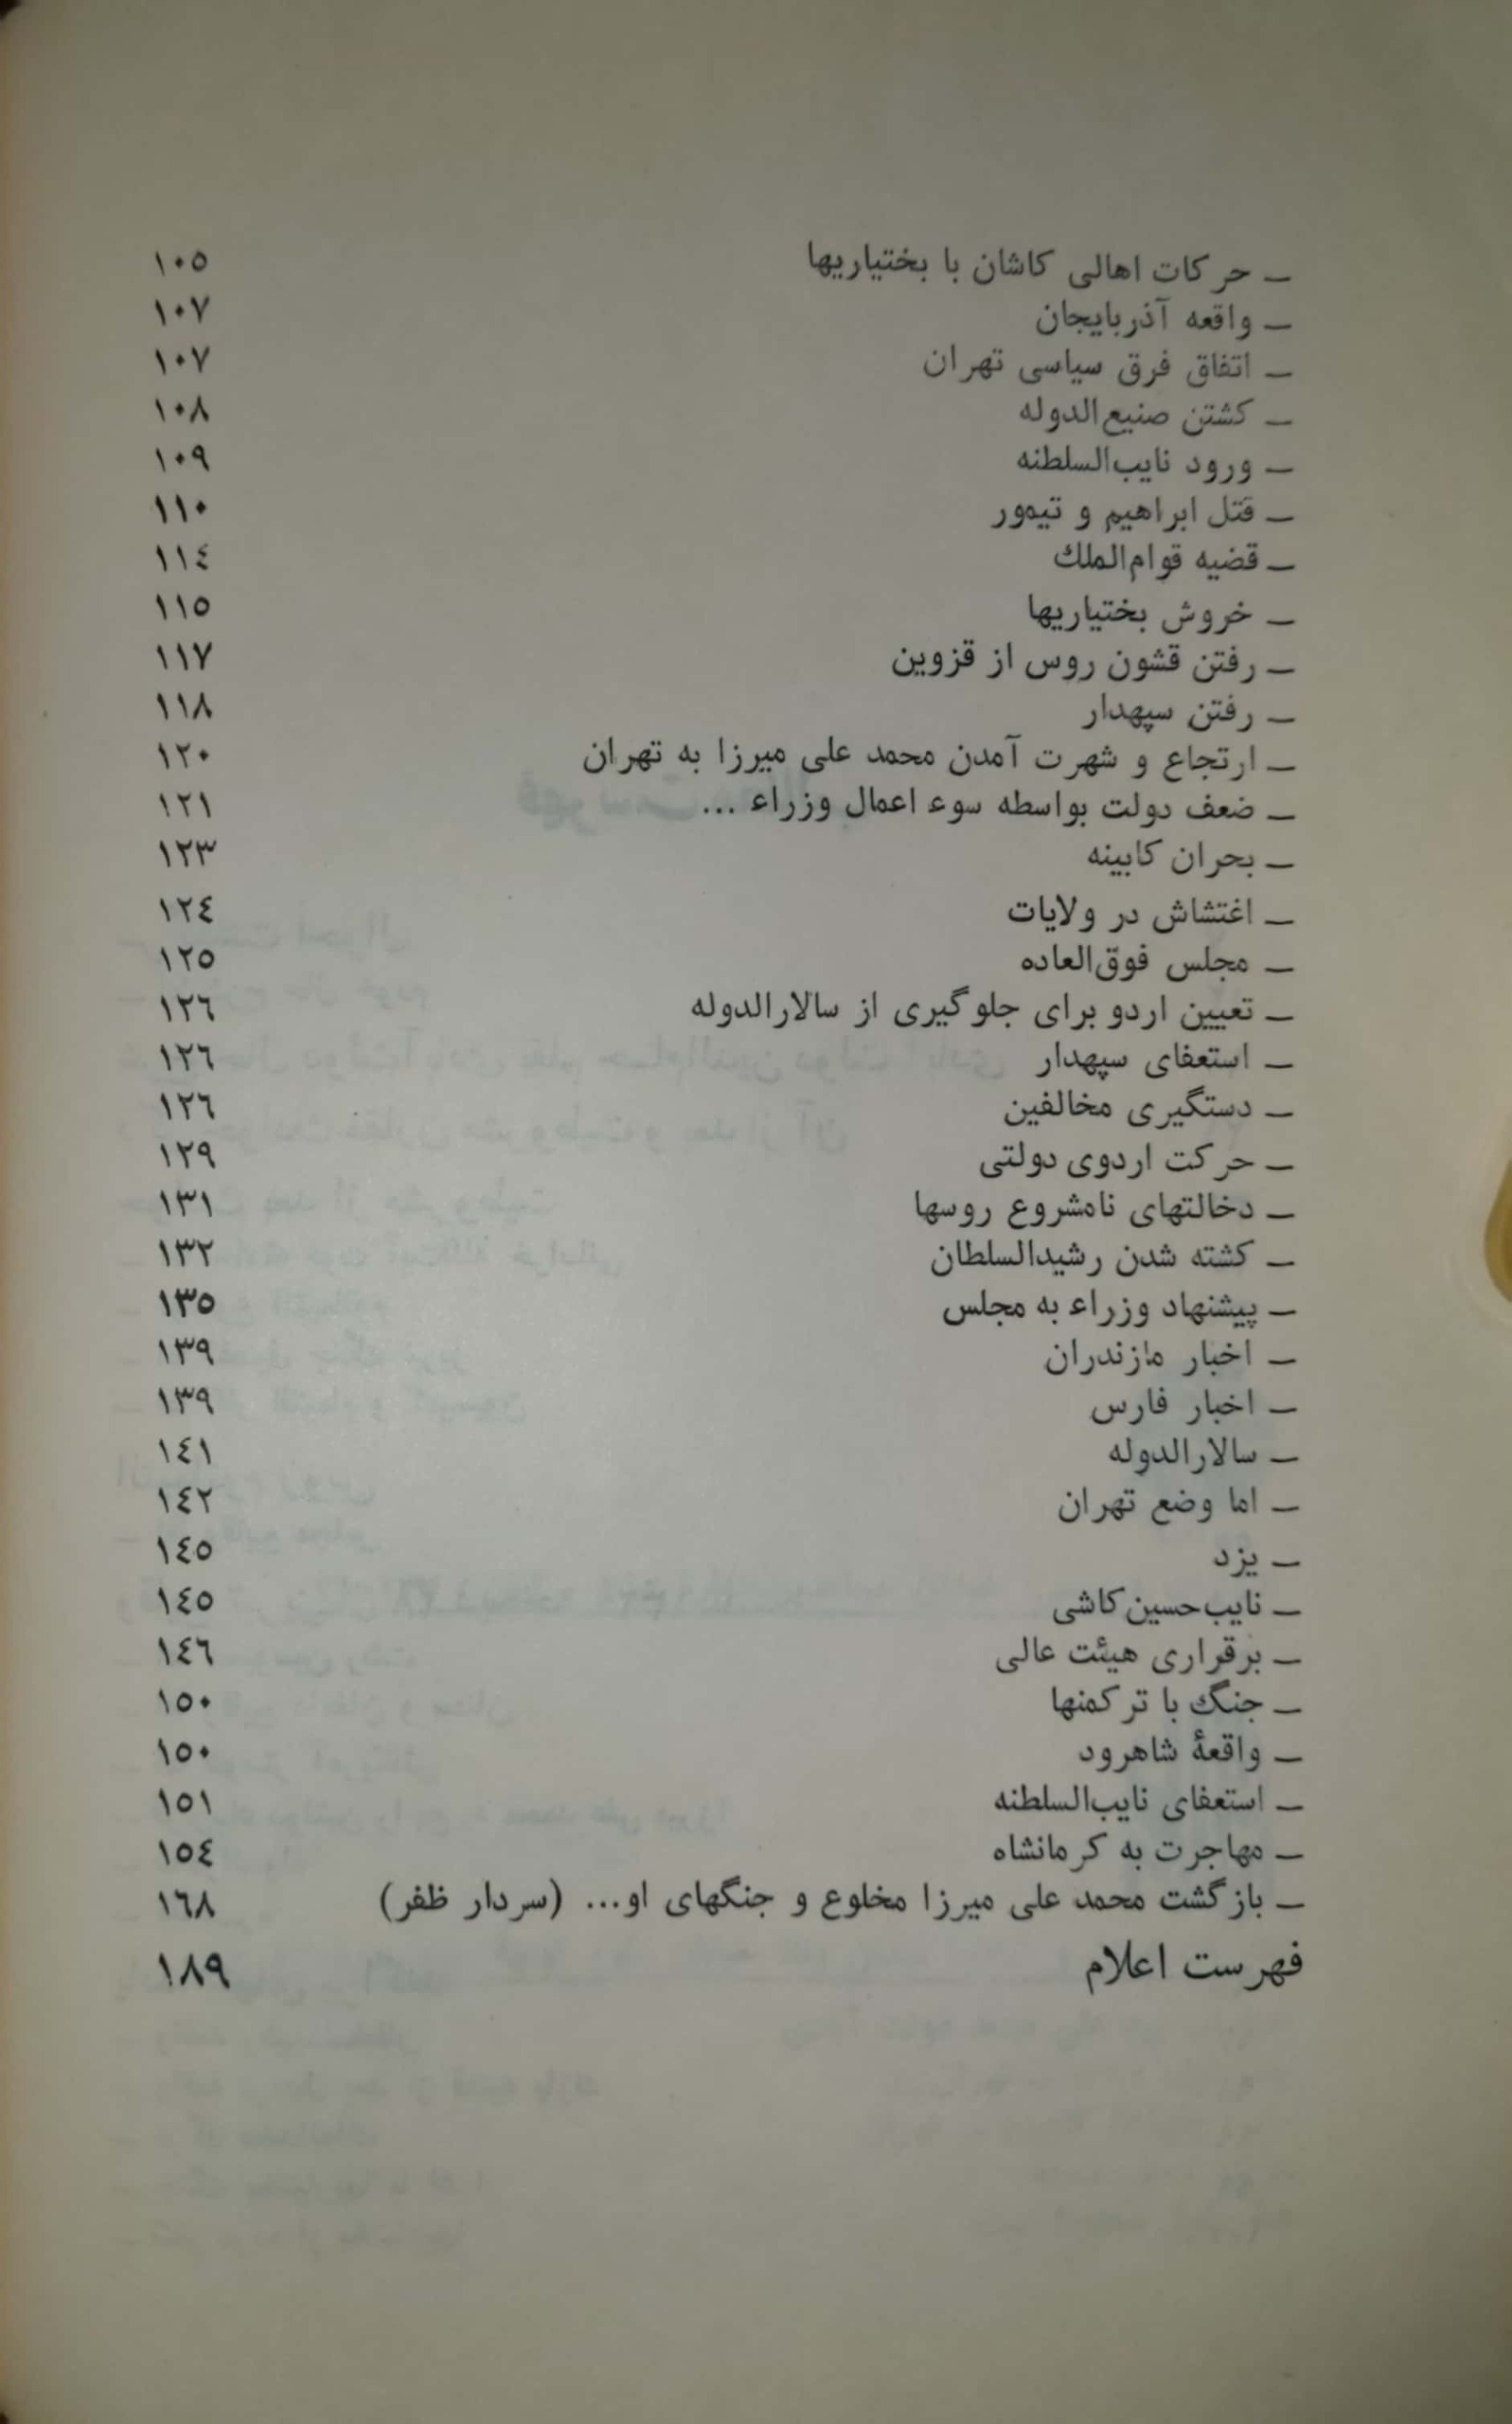 ـ حرکات اهالی کاشان با بختیاریها ۱۰۵
ـ واقعه آذربایجان ۱۰۷
ـ اتفاق فرق سیاسی تهران ۱۰۷
ـ کشتن صنیع‌الدوله ۱۰۸
ـ ورود نایب‌السلطنه ۱۰۹
ـ قتل ابراهیم و تیمور ۱۱۰
ـ قضیه قوام‌الملك ۱۱٤
ـ خروش بختیاریها ۱۱۵
ـ رفتن قشون روس از قزوین ۱۱۷
ـ رفتن سپهدار ۱۱۸
ـ ارتجاع و شهرت آمدن محمد علی میرزا به تهران ۱۲۰
ـ ضعف دولت بواسطه سوء اعمال وزراء ... ۱۲۱
ـ بحران کابینه ۱۲۳
ـ اغتشاش در ولایات ۱۲٤
ـ مجلس فوق‌العاده ۱۲۵
ـ تعیین اردو برای جلوگیری از سالارالدوله ۱۲٦
ـ استعفای سپهدار ۱۲٦
ـ دستگیری مخالفین ۱۲٦
ـ حرکت اردوی دولتی ۱۲۹
ـ دخالتهای نامشروع روسها ۱۳۱
ـ کشته شدن رشیدالسلطان ۱۳۲
ـ پیشنهاد وزراء به مجلس ۱۳۵
ـ اخبار مازندران ۱۳۹
ـ اخبار فارس ۱۳۹
ـ سالارالدوله ۱٤۱
ـ اما وضع تهران ۱٤۲
ـ یزد ۱٤۵
ـ نایب‌حسین‌کاشی ۱٤۵
ـ برقراری هیئت عالی ۱٤٦
ـ جنگ با ترکمنها ۱۵۰
ـ واقعهٔ شاهرود ۱۵۰
ـ استعفای نایب‌السلطنه ۱۵۱
ـ مهاجرت به کرمانشاه ۱۵٤
ـ بازگشت محمد علی میرزا مخلوع و جنگهای او... (سردار ظفر) ۱٦۸
فهرست اعلام ۱۸۹